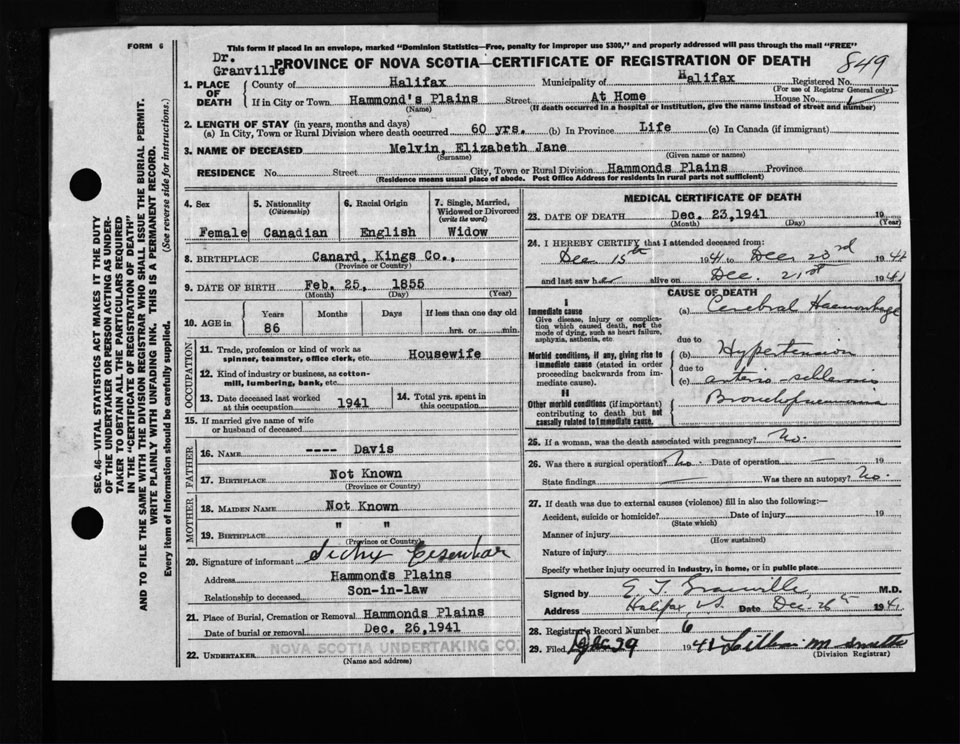 FORM 6
This form if placed in an envelope, marked "Dominion Statistics—Free, penalty for improper use $300," and properly addressed will pass through the mail "FREE"
Dr.
Granville
PROVINCE OF NOVA SCOTIA—CERTIFICATE OF REGISTRATION OF DEATH
849
1. PLACE OF DEATH
County of Halifax Municipality of Halifax Registered No.
(For use of Registrar General only)
If in City or Town Hammond's Plains Street At Home House No.
(Name) (If death occurred in a hospital or institution, give the name instead of street and number)
2. LENGTH OF STAY (in years, months and days)
(a) In City, Town or Rural Division where death occurred 60 yrs. (b) In Province Life (c) In Canada (if immigrant)
3. NAME OF DECEASED Melvin, Elizabeth Jane
(Surname) (Given name or names)
RESIDENCE No. Street City, Town or Rural Division Hammonds Plains Province
(Residence means usual place of abode. Post Office Address for residents in rural parts not sufficient)
4. Sex
Female
5. Nationality
(Citizenship)
Canadian
6. Racial Origin
English
7. Single, Married,
Widowed or Divorced
(write the word)
Widow
8. BIRTHPLACE Canard, Kings Co.,
(Province or Country)
9. DATE OF BIRTH Feb. 25, 1855
(Month) (Day) (Year)
10. AGE in
Years Months Days If less than one day old
86 hrs. or min.
OCCUPATION
11. Trade, profession or kind of work as
spinner, teamster, office clerk, etc. Housewife
12. Kind of industry or business, as cotton-
mill, lumbering, bank, etc.
13. Date deceased last worked
at this occupation 1941
14. Total yrs. spent in
this occupation
15. If married give name of wife
or husband of deceased
FATHER
16. NAME ---- Davis
17. BIRTHPLACE Not Known
(Province or Country)
MOTHER
18. MAIDEN NAME Not Known
19. BIRTHPLACE " "
(Province or Country)
20. Signature of informant
Address Hammonds Plains
Relationship to deceased Son-in-law
21. Place of Burial, Cremation or Removal Hammonds Plains
Date of burial or removal Dec. 26, 1941
22. UNDERTAKER NOVA SCOTIA UNDERTAKING CO.
(Name and address)
MEDICAL CERTIFICATE OF DEATH
23. DATE OF DEATH Dec. 23, 1941 19
(Month) (Day) (Year)
24. I HEREBY CERTIFY that I attended deceased from:
Dec. 15th 1941 to Dec 23rd 1941
and last saw her alive on Dec. 21st 1941
CAUSE OF DEATH
I
Immediate cause
Give disease, injury or complica-
tion which caused death, not the
mode of dying, such as heart failure,
asphyxia, asthenia, etc
(a) Cerebral Haemorrhage
due to
Morbid conditions, if any, giving rise to
immediate cause (stated in order
proceeding backwards from im-
mediate cause).
(b) Hypertension
due to
(c) arterio-sclerosis
II
Other morbid conditions (if important)
contributing to death but not
causally related to immediate cause.
Bronchopneumonia
25. If a woman, was the death associated with pregnancy? No.
26. Was there a surgical operation? No. Date of operation — 19
State findings — Was there an autopsy? No.
27. If death was due to external causes (violence) fill in also the following:—
Accident, suicide or homicide? Date of injury 19
(State which)
Manner of injury
(How sustained)
Nature of injury
Specify whether injury occurred in industry, in home, or in public place
Signed by E T Granville M.D.
Address Halifax N.S. Date Dec. 26th 1941
28. Registrar's Record Number 6
29. Filed Dec 29 1941 Lillian M Smith
(Division Registrar)
SEC. 46—VITAL STATISTICS ACT MAKES IT THE DUTY
OF THE UNDERTAKER OR PERSON ACTING AS UNDER-
TAKER TO OBTAIN ALL THE PARTICULARS REQUIRED
IN THE "CERTIFICATE OF REGISTRATION OF DEATH"
AND TO FILE THE SAME WITH THE DIVISION REGISTRAR WHO SHALL ISSUE THE BURIAL PERMIT.
WRITE PLAINLY WITH UNFADING INK. THIS IS A PERMANENT RECORD.
Every item of Information should be carefully supplied. (See reverse side for instructions.)